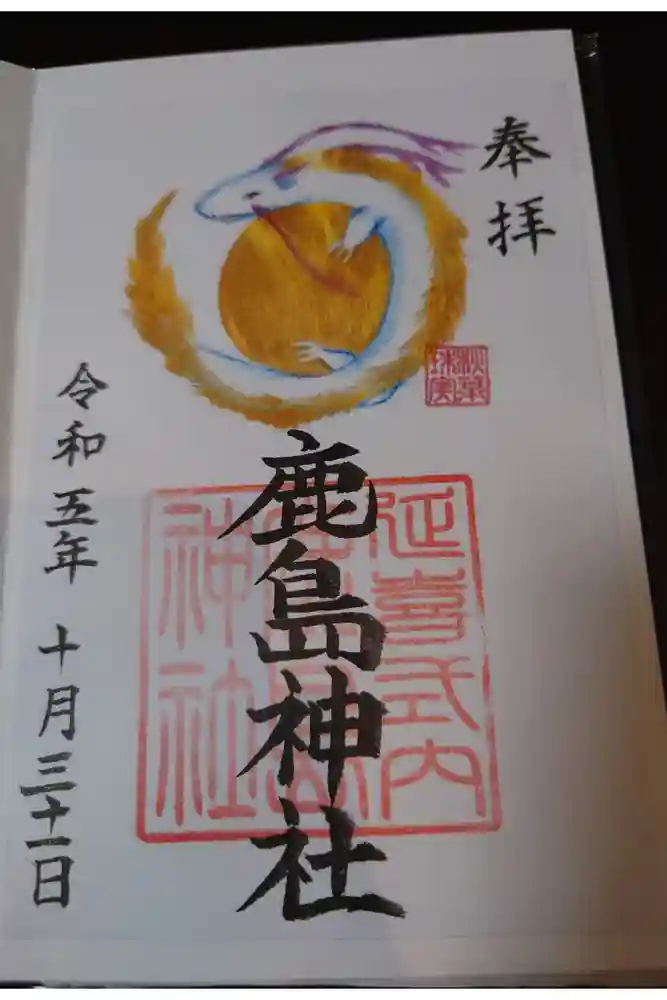 奉拝
鹿島神社
延喜式内
神社
令和五年 十月三十一日